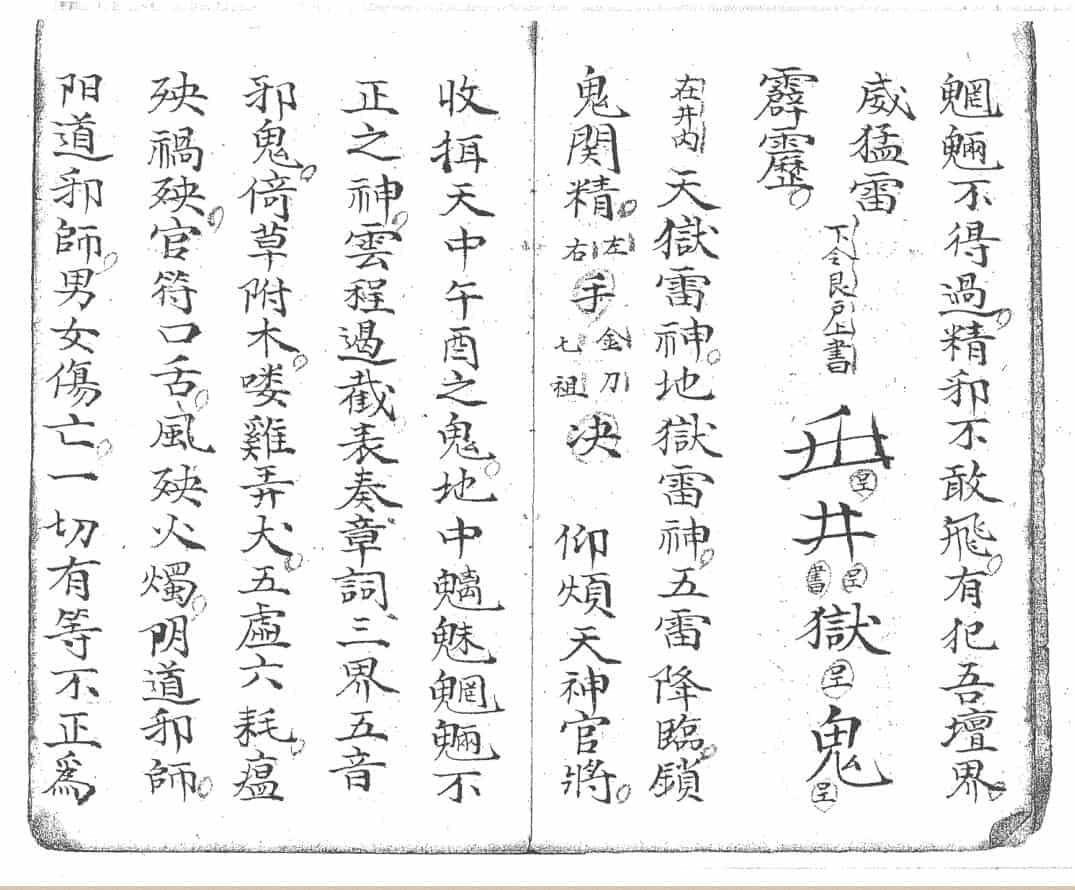 魍魎不得過。精邪不敢飛。有犯吾壇界。
威猛雷
霹靂。
下令艮戶上書
井
書
獄
鬼
在井内
天獄雷神。地獄雷神。五雷降臨。鎖
鬼関精。
左
右
手
金刀
七祖
决
仰煩天神官將。
收捐天中午酉之鬼。地中魑魅魍魎不
正之神。雲程遏截表奏章詞三界五音
邪鬼。倚草附木。喽雞弄犬。五虛六耗。瘟
殃禍殃。官符口舌。風殃火燭。阴道邪師。
阳道邪師。男女傷亡。一切有等不正爲